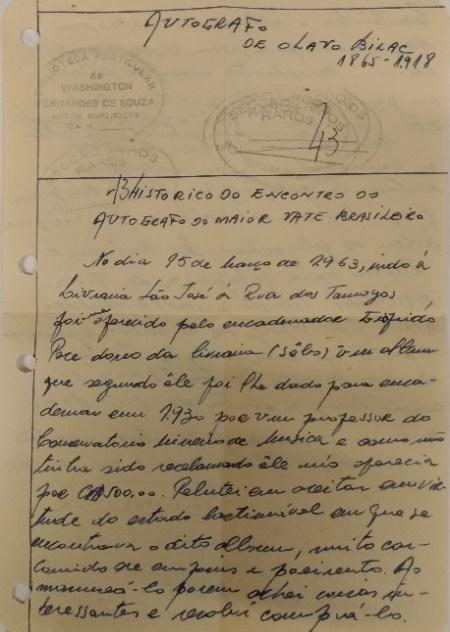 AUTOGRAFO
DE OLAVO BILAC
1865-1918
BIBLIOTECA PARTICULAR
de
WASHINGTON
FERNANDES DE SOUZA
SECÇÃO LIVROS
RAROS
43
43 HISTORICO DO ENCONTRO DO
AUTOGRAFO DO MAIOR VATE BRASILEIRO
No dia 15 de março de 1963, indo à
Livraria São José à Rua dos Tamoyos
foi-me oferecido pelo encadernador
Pace dono da livraria (Sêbo) um album
que segundo êle foi lhe dado para enca-
dernar em 1.930 por um professor do
Conservatorio Mineiro de Musica e como não
tinha sido reclamado êle nos oferecia
por C$500,00. Relutei em aceitar em vir-
tude do estado lastimável em que se
encontrava o dito album, muito car-
comido de e poeirento. Ao
manuseá-lo porem achei coisas in-
teressantes e resolvi comprá-lo.